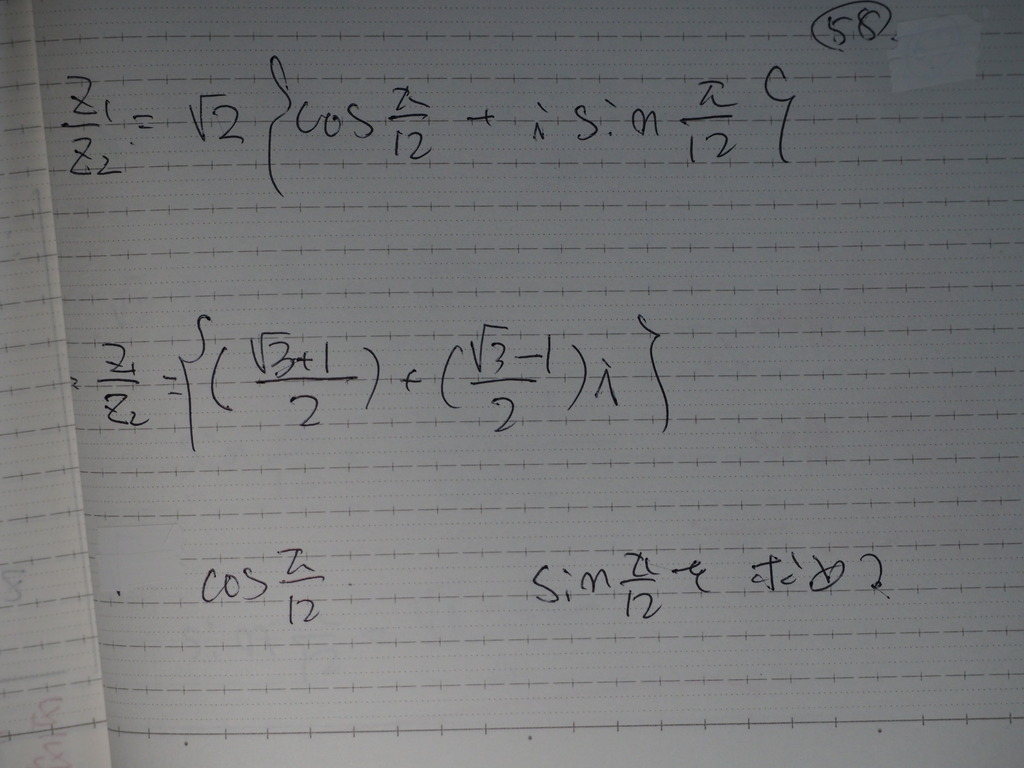 58.
z₁/z₂ = √2 { cos π/12 + i sin π/12 }
z₁/z₂ = { (√3+1/2) + (√3-1/2) i }
cos π/12 sin π/12 を 求めよ